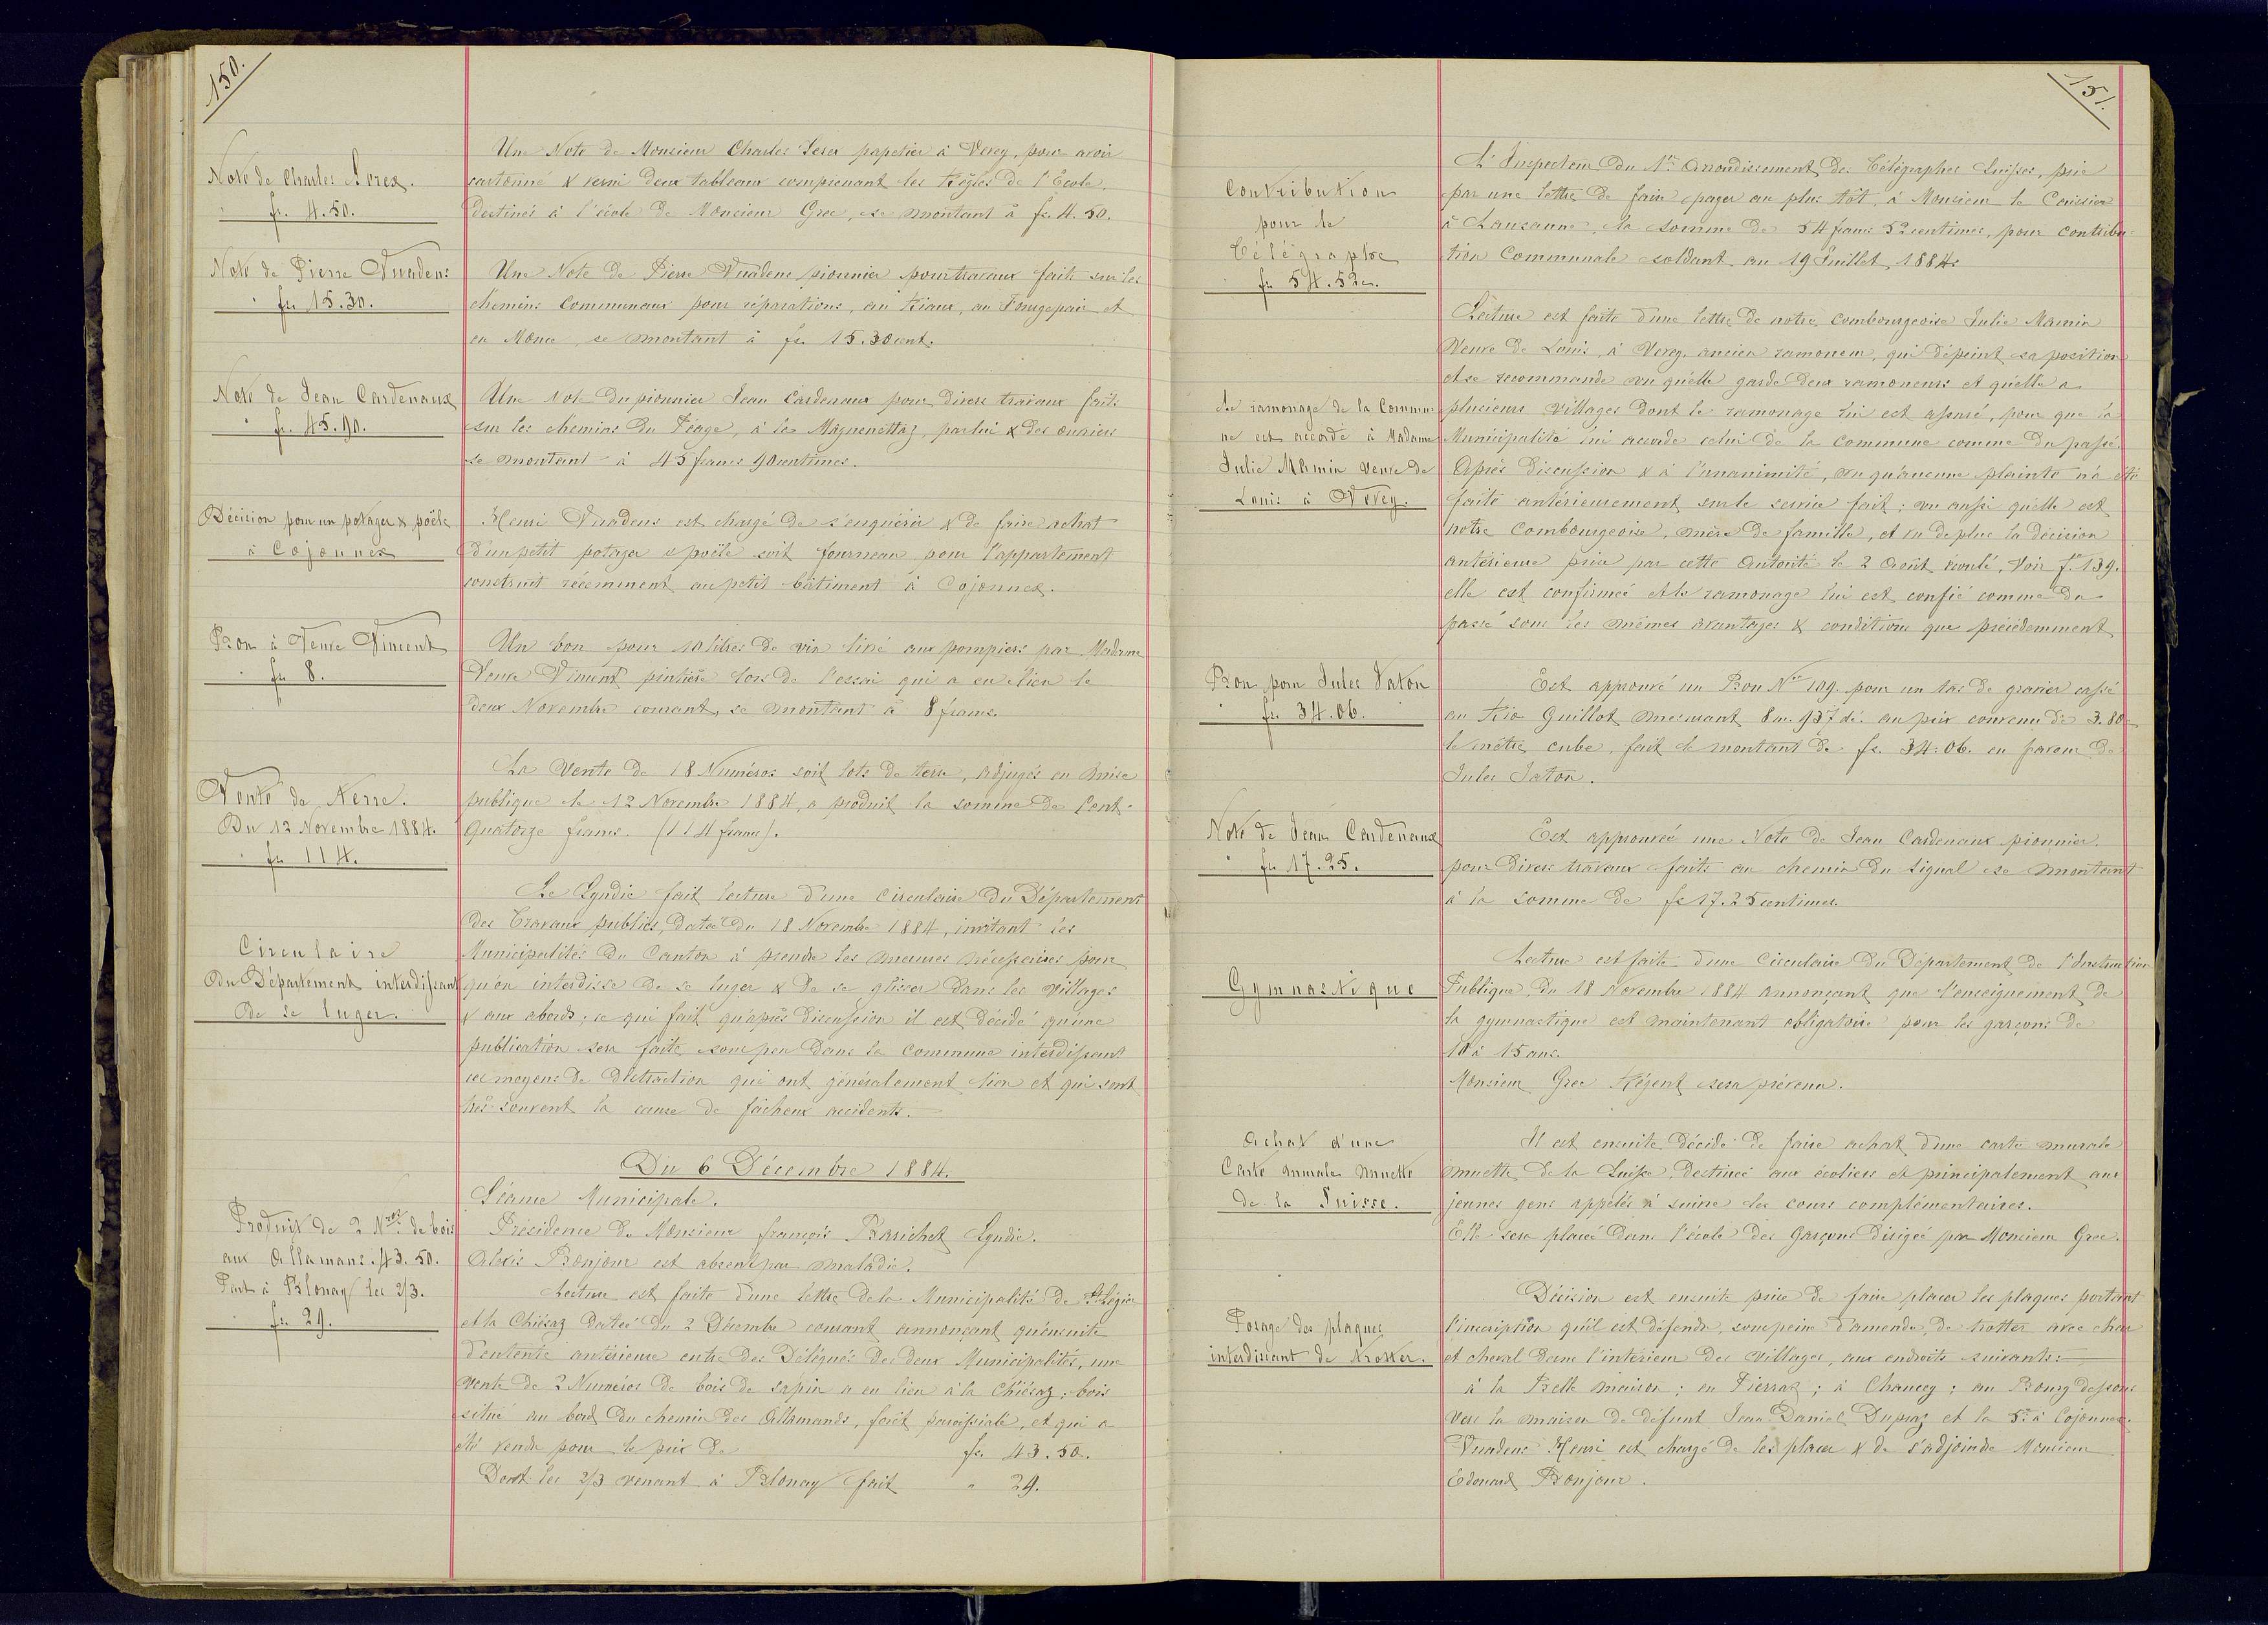 150.
Note de Charles
fr. 4.50.
Une Note de Monsieur Charles papetier à Vevey, pour avoir
cartonné & verni deux tableaux comprenant les Règles de l'Ecole,
destinés à l'école de Monsieur Grec, se montant à fr. 4.50.
Note de Pierre Vuadens
fr. 15.30.
Une Note de Pierre Vuadens pionnier pour travaux faits sur les
chemins communaux pour réparations, au, au et
en, se montant à fr. 15.30 cent.
Note de Jean Cardenaux
fr. 45.90.
Une Note du pionnier Jean Cardenaux pour divers travaux faits
sur les chemins du Péage, à la, par lui & des ouvriers
se montant à 45 francs 90 centimes.
Décision pour un potager & poële
à Cojonnex
Henri Vuadens est chargé de s'enquérir & de faire achat
d'un petit potager & poële soit fourneau pour l'appartement
construit récemment au petit bâtiment à Cojonnex.
Bon à Veuve Vincent
fr. 8.
Un bon pour 10 litres de vin livré aux pompiers par Madame
Veuve Vincent pintière lors de l'essai qui a eu lieu le
deux Novembre courant, se montant à 8 francs.
Vente de Terre.
Du 12 Novembre 1884.
fr. 114.
La vente de 18 Numéros soit lots de terre, adjugés en mise
publique le 12 Novembre 1884, a produit la somme de Cent-
quatorze francs. (114 francs).
Circulaire
Du Département interdissant
de se luger.
Le Syndic fait lecture d'une Circulaire du Département
des Travaux publics, datée du 18 Novembre 1884, invitant les
Municipalités du Canton à prendre les mesures nécessaires pour
qu'on interdisse de se luger & de se glisser dans les villages
& aux abords; ce qui fait qu'après discussion il est décidé qu'une
publication sera faite sous peu dans la Commune interdissant
ces moyens de distraction qui ont généralement lieu et qui sont
très-souvent la cause de fâcheux accidents.
Du 6 Décembre 1884.
Séance Municipale.
Présidence de Monsieur François Bavichet Syndic.
Alexis Bonjour est absent par maladie.
Produit de 2 Nros de bois
aux Allamans. 43.50.
Part à Blonay les 2/3.
fr. 29.
Lecture est faite d'une lettre de la Municipalité de St Légier
et la Chiésaz datée du 2 Décembre courant annonçant qu'ensuite
d'entente antérieure entre des Délégués des deux Municipalités, une
vente de 2 Numéros de bois de sapin a eu lieu à la Chiésaz; bois
situé au bord du chemin des Allamands, forêt paroissiale, et qui a
été vendu pour le prix de fr. 43.50.
Dont les 2/3 venant à Blonay fait " 29.
151.
Contribution
pour le
Télégraphe
fr. 54.52 c.
L'Inspecteur du 1er Arrondissement des Télégraphes Suisses, prie
par une lettre de faire payer au plus tôt, à Monsieur le Caissier
à Lausanne, la somme de 54 francs 52 centimes, pour contribu-
tion Communale soldant au 19 Juillet 1884.
Le ramonage de la Commu
ne est accordé à Madame
Julie Mamin veuve de
Louis à Vevey.
Lecture est faite d'une lettre de notre combourgeoise Julie Mamin
Veuve de Louis, à Vevey, ancien ramoneur, qui dépeint sa position
et se recommande vu qu'elle garde deux ramoneurs et qu'elle a
plusieurs villages dont le ramonage lui est assuré, pour que la
Municipalité lui accorde celui de la commune comme du passé.
Après discussion & à l'unanimité, vu qu'aucune plainte n'a été
faite antérieurement sur le service fait; vu aussi qu'elle est
notre Combourgeoise, mère de famille, et en de plus la décision
antérieure prise par cette Autorité le 2 Août écoulé, Voir fo 139.
elle est confirmée et le ramonage lui est confié comme du
passé sous les mêmes avantages & conditions que précédemment
Bon pour Jules Jaton
fr. 34.06.
Est approuvé un Bon No 109. pour un tas de gravier cassé
au Guillot mesurant 8 m. 937 dé. au prix convenu de 3.80 c
le mètre cube, fait le montant de fr. 34.06. en faveur de
Jules Jaton.
Note de Jean Cardenaux
fr. 17.25.
Est approuvée une Note de Jean Cardenaux pionnier.
pour divers travaux faits au chemin du signal se montant
à la somme de fr 17.25 centimes.
Gymnastique
Lecture est faite d'une Circulaire du Département de l'Instruction
Publique, du 18 Novembre 1884 annonçant que l'enseignement de
la gymnastique est maintenant obligatoire pour les garçons de
10 à 15 ans.
Monsieur Grec Régent sera prévenu.
Achat d'une
Carte murale muette
de la Suisse.
Il est ensuite décidé de faire achat d'une carte murale
muette de la Suisse, destinée aux écoliers et principalement aux
jeunes gens appelés à suivre les cours complémentaires.
Elle sera placée dans l'école des garçons dirigée par Monsieur Grec.
Posage des plaques
interdissant de trotter.
Décision est ensuite prise de faire placer les plaques portant
l'inscription qu'il est défendu, sous peine d'amende, de trotter avec char
et cheval dans l'intérieur des villages, aux endroits suivants:
à la Belle maison; en Pierraz; à Chaucey; au Bourg dessous
vers la maison de défunt Jean Daniel Dupraz et la 5e à Cojonnex.
Vuadens Henri est chargé de les placer & de s'adjoindre Monsieur
Edouard Bonjour.